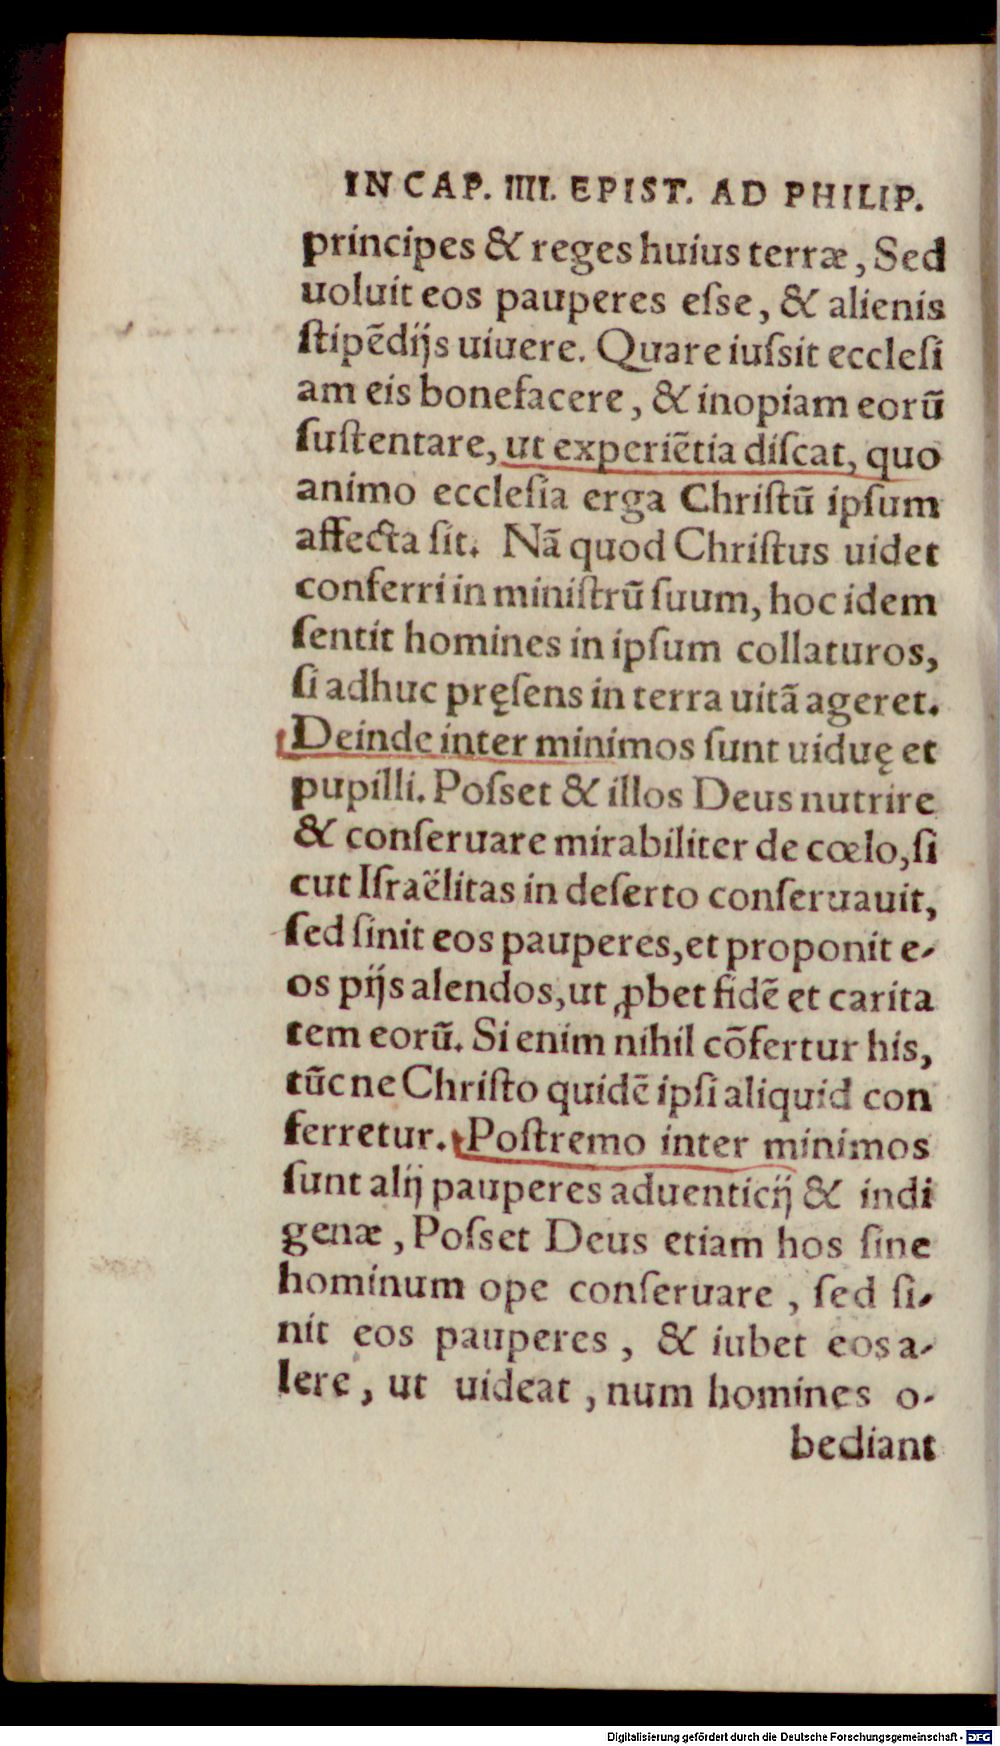 IN CAP. IIII. EPIST. AD PHILIP.
principes & reges huius terræ, Sed
uoluit eos pauperes eſse, & alienis
ſtipēdijs uiuere. Quare iuſsit eccleſi
am eis bonefacere, & inopiam eorū
ſuſtentare, ut experiētia diſcat, quo
animo eccleſia erga Chriſtū ipſum
affecta ſit. Nā quod Chriſtus uidet
conferri in miniſtrū ſuum, hoc idem
ſentit homines in ipſum collaturos,
ſi adhuc pręſens in terra uitā ageret.
Deinde inter minimos ſunt uiduę et
pupilli. Poſset & illos Deus nutrire
& conſeruare mirabiliter de cœlo, ſi
cut Iſraëlitas in deſerto conſeruauit,
ſed ſinit eos pauperes, et proponit e-
os pijs alendos, ut ꝓbet fidē et carita
tem eorū. Si enim nihil cōfertur his,
tūc ne Chriſto quidē ipſi aliquid con
ferretur. Poſtremo inter minimos
ſunt alij pauperes aduenticij & indi
genæ, Poſset Deus etiam hos ſine
hominum ope conſeruare, ſed ſi-
nit eos pauperes, & iubet eos a-
lere, ut uideat, num homines o-
bediant
Digitalisierung gefördert durch die Deutsche Forschungsgemeinschaft - DFG